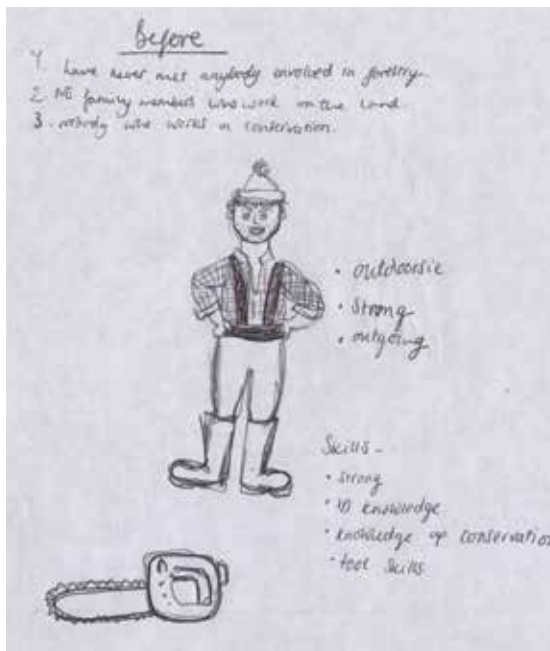 Before
1. have never met anybody involved in forestry.
2. No family members who work on the land
3. nobody who works in conservation.
• outdoorsie
• Strong
• outgoing
Skills -
• strong
• ID knowledge.
• knowledge of conservation
• tool skills